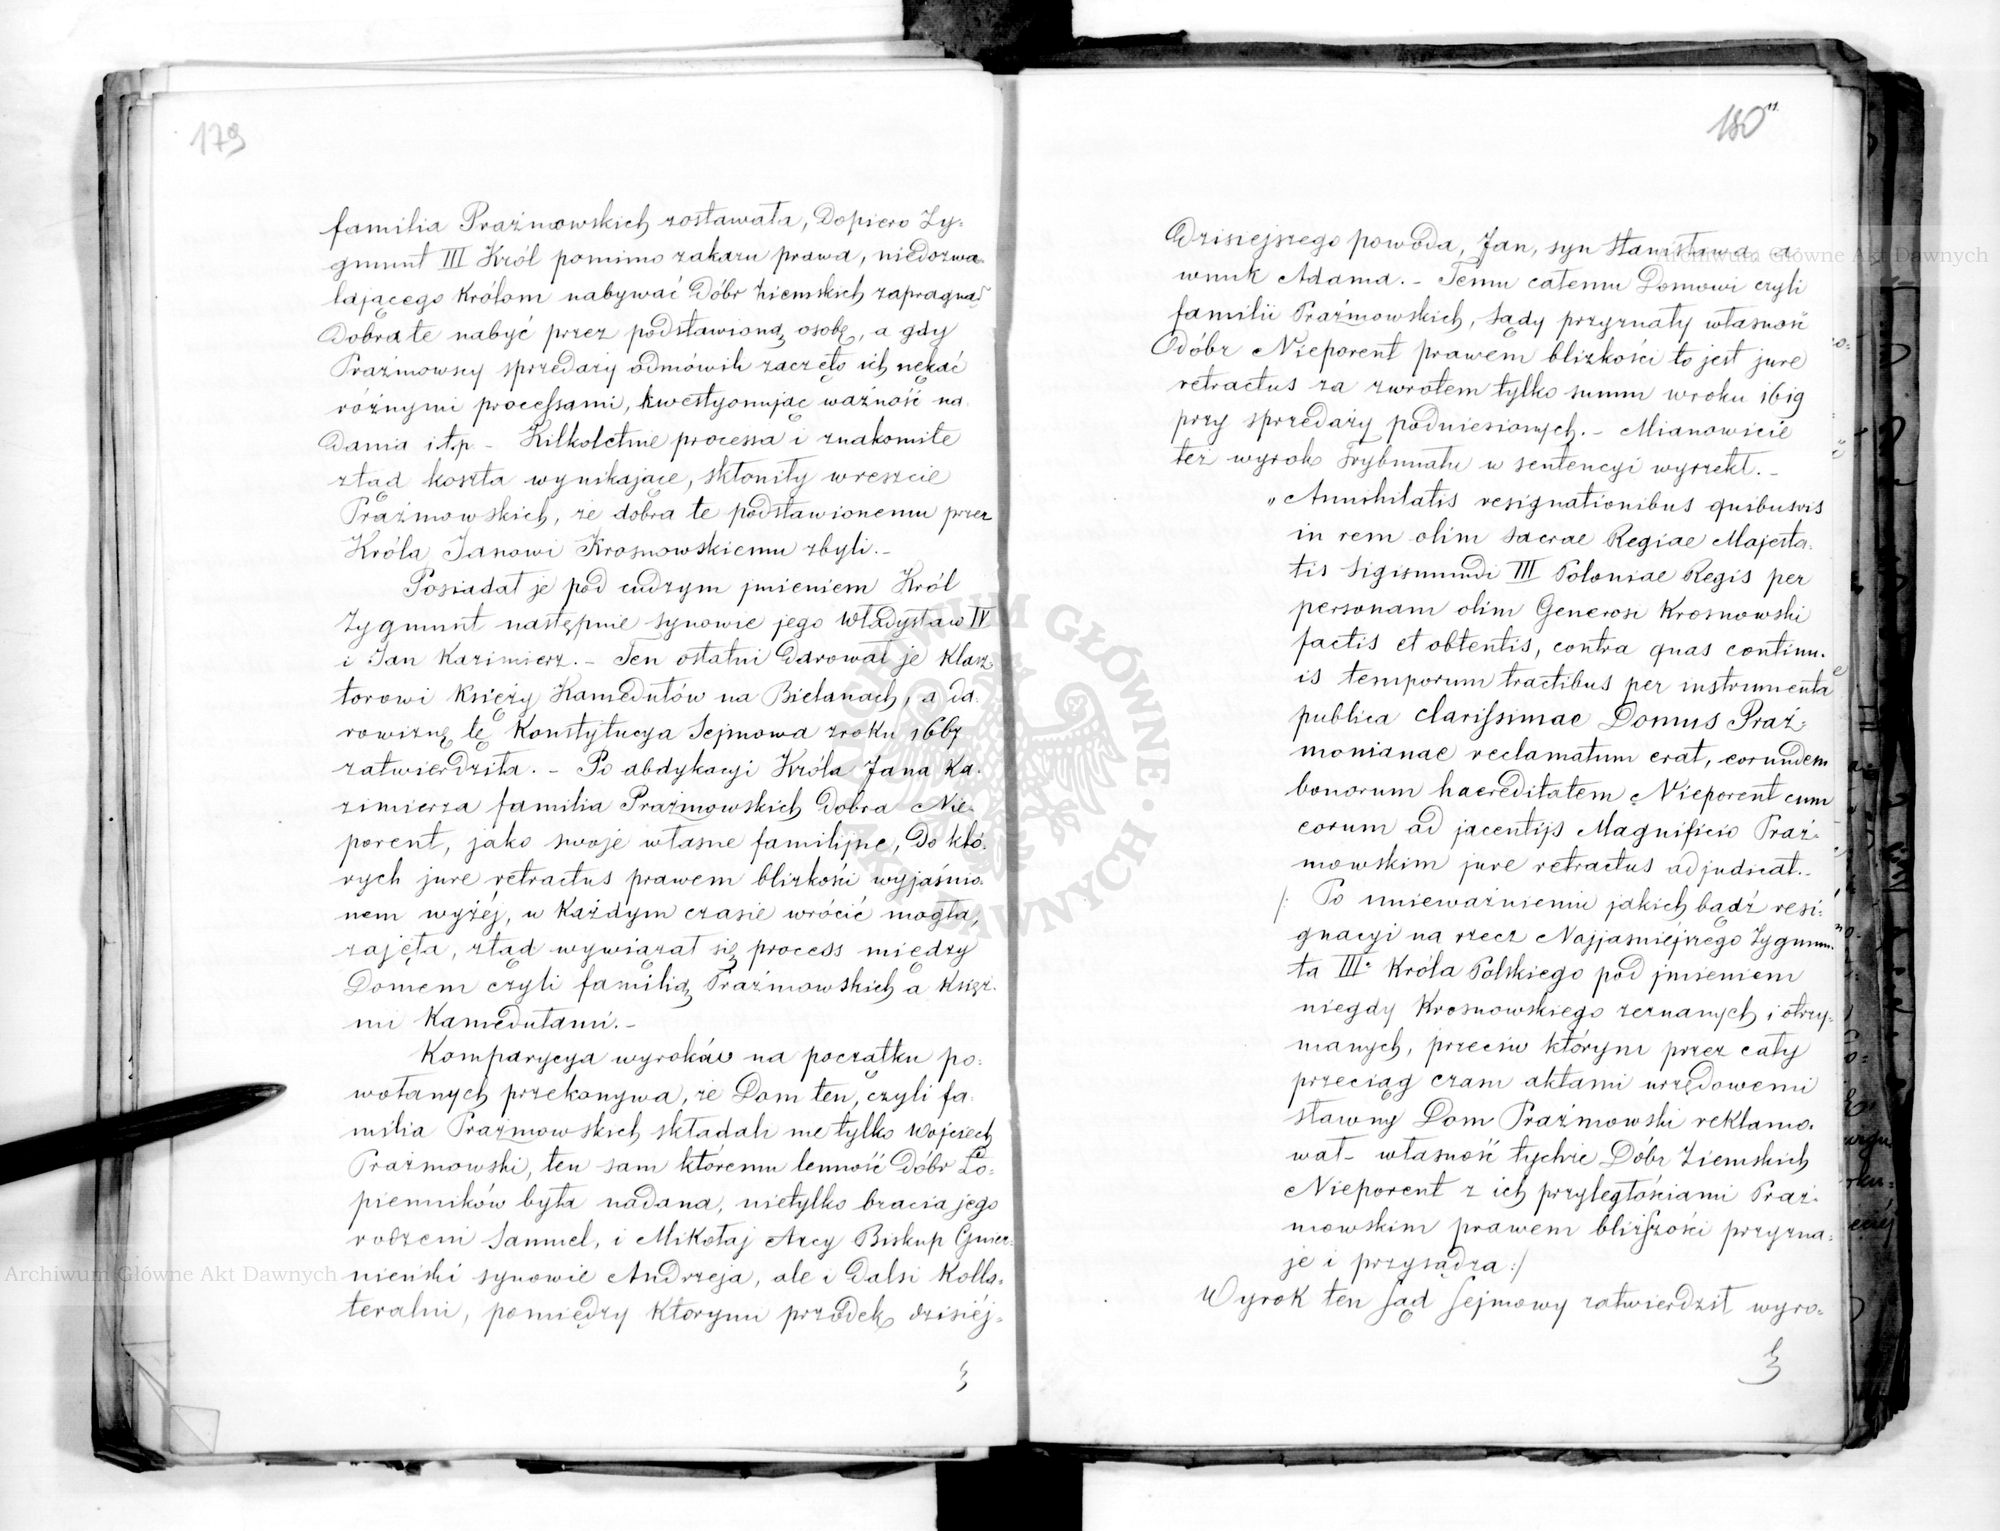 179
familia Prażmowskich zostawała, Dopiero Zy-
gmunt III Król pomimo zakazu prawa, niedozwa-
lającego Królom nabywać Dóbr ziemskich zapragnął
Dobra te nabyć przez podstawioną osobę, a gdy
Prażmowscy sprzedaży odmówili zaczęto ich nękać
różnymi processami, kwestyonując ważność na-
dania i.t.p – Kilkoletnie processa i znakomite
ztąd koszta wynikające, skłoniły wreszcie
Prażmowskich, że dobra te podstawionemu przez
Króla Janowi Krosnowskiemu zbyli. –
Posiadał je pod cudzym jmieniem Król
Zygmunt następnie synowie jego Władysław IV
i Jan Kazimierz. – Ten ostatni darował je klasz-
torowi Księży Kamedułów na Bielanach, a da-
rowiznę tę Konstytucya Sejmowa z roku 1667
zatwierdziła. – Po abdykacyi Króla Jana Ka-
zimierza familia Prażmowskich Dobra Nie-
porent, jako swoje własne familijne, do któ-
rych jure retractus prawem blizkości wyjaśnio-
nem wyżéj, w każdym czasie wrócić mogła,
zajęła, ztąd wywiązał się process między
Domem czyli familią Prażmowskich a Księż-
mi Kamedułami. –
Komparycya wyroków na początku po-
wołanych przekonywa, że Dom ten, czyli fa-
milia Prażmowskich składali nie tylko Wojciech
Prażmowski, ten sam któremu lenność Dóbr Ło-
pienników była nadana, nietylko bracia jego
rodzeni Samuel, i Mikołaj Arcy Biskup Gnieź-
nieński synowie Andrzeja, ale i dalsi Kolla-
teralni, pomiędzy którymi przodek dzisiéj-
180
Dzisiejszego powoda, Jan, syn Stanisława, a
wnuk Adama. – Temu całemu Domowi czyli
familii Prażmowskich, Sądy przyznały własność
Dóbr Nieporent prawem blizkości to jest jure
retractus za zwrotem tylko summ w roku 1619
przy sprzedaży podniesionych. – Mianowicie
też wyrok Trybunału w sentencyi wyrzekł. –
„Annihilatis resignationibus quibusvis
in rem olim Sacrae Regiae Majesta-
tis Sigismundi III Poloniae Regis per
personam olim Generosi Krosnowski
factis et obtentis, contra quas continu-
is temporum tractibus per instrumenta
publica clarissimae Domus Praż-
monianae reclamatum erat, eorundem
bonorum haereditatem Nieporent cum
eorum ad jacentijs Magnificis Praż-
mowskim jure retractus adjudicat. –
/: Po unieważnieniu jakich bądź resi-
gnacyi na rzecz Najjaśniejszego Zygmun-
ta III° Króla Polskiego pod jmieniem
niegdy Krosnowskiego zeznanych i otrzy-
manych, przeciw którym przez cały
przeciąg czasu aktami urzędowemi
sławny Dom Prażmowski reklamo-
wał – własność tychże Dóbr Ziemskich
Nieporent z ich przyległościami Praż-
mowskim prawem bliższości przyzna-
je i przysądza :/
Wyrok ten Sąd Sejmowy zatwierdził wyro-
Archiwum Główne Akt Dawnych
Archiwum Główne Akt Dawnych
ARCHIWUM GŁÓWNE AKT DAWNYCH